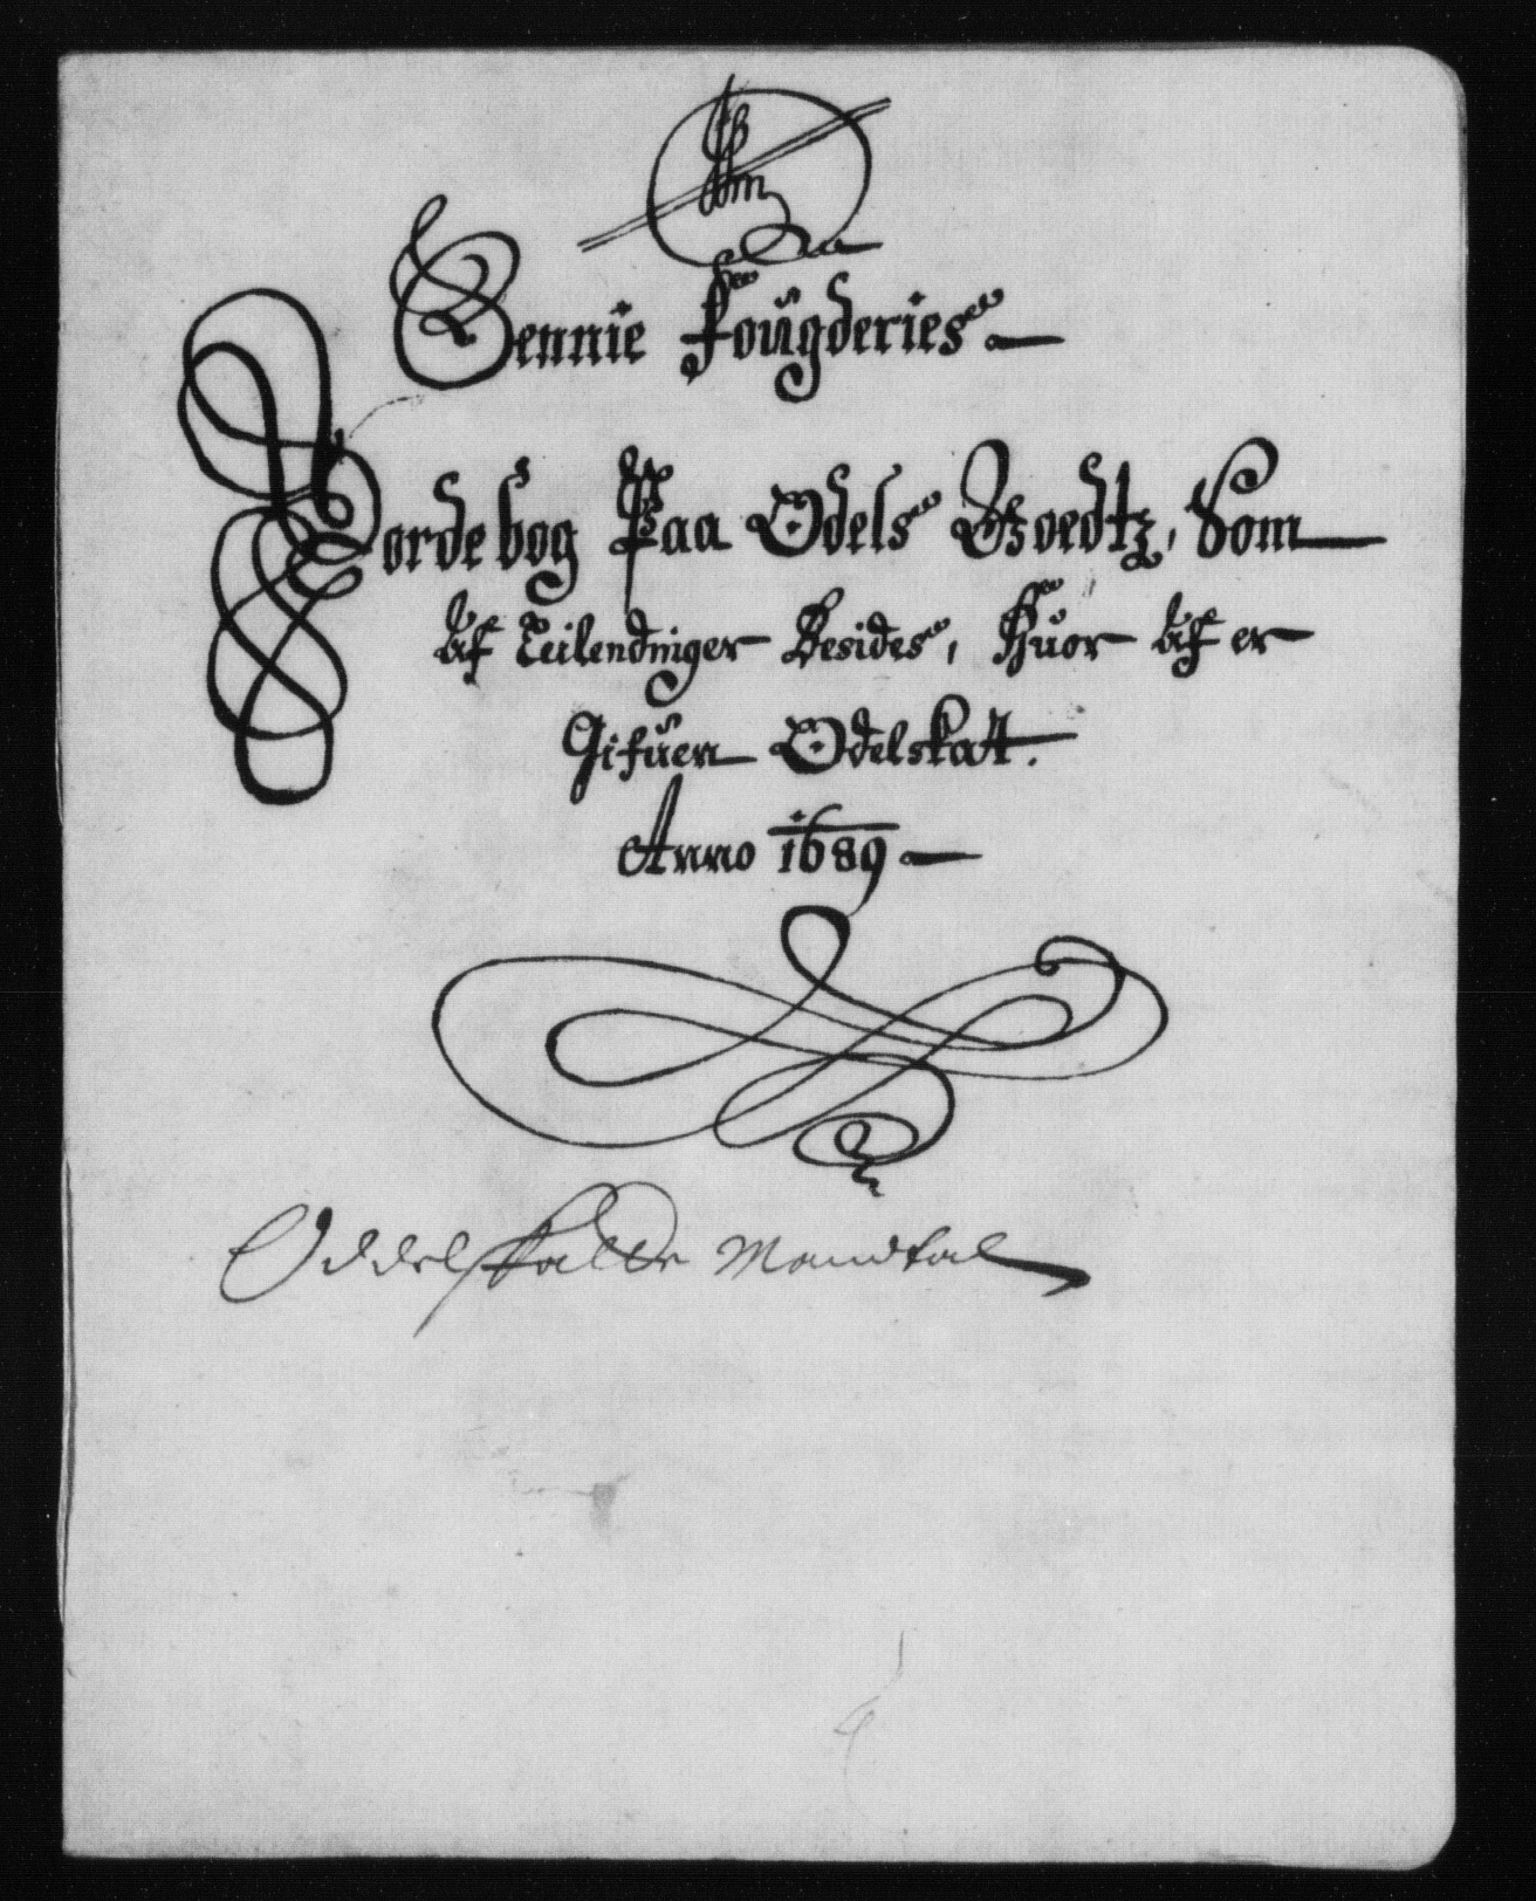 Sennie Fougderies
Jordebog Paa Odels Goedtz, Som
Af Leilendinger Besides, Huor Af er
Gifuen Odelskatt.
Anno 1689
Oddelskatte Mandtal